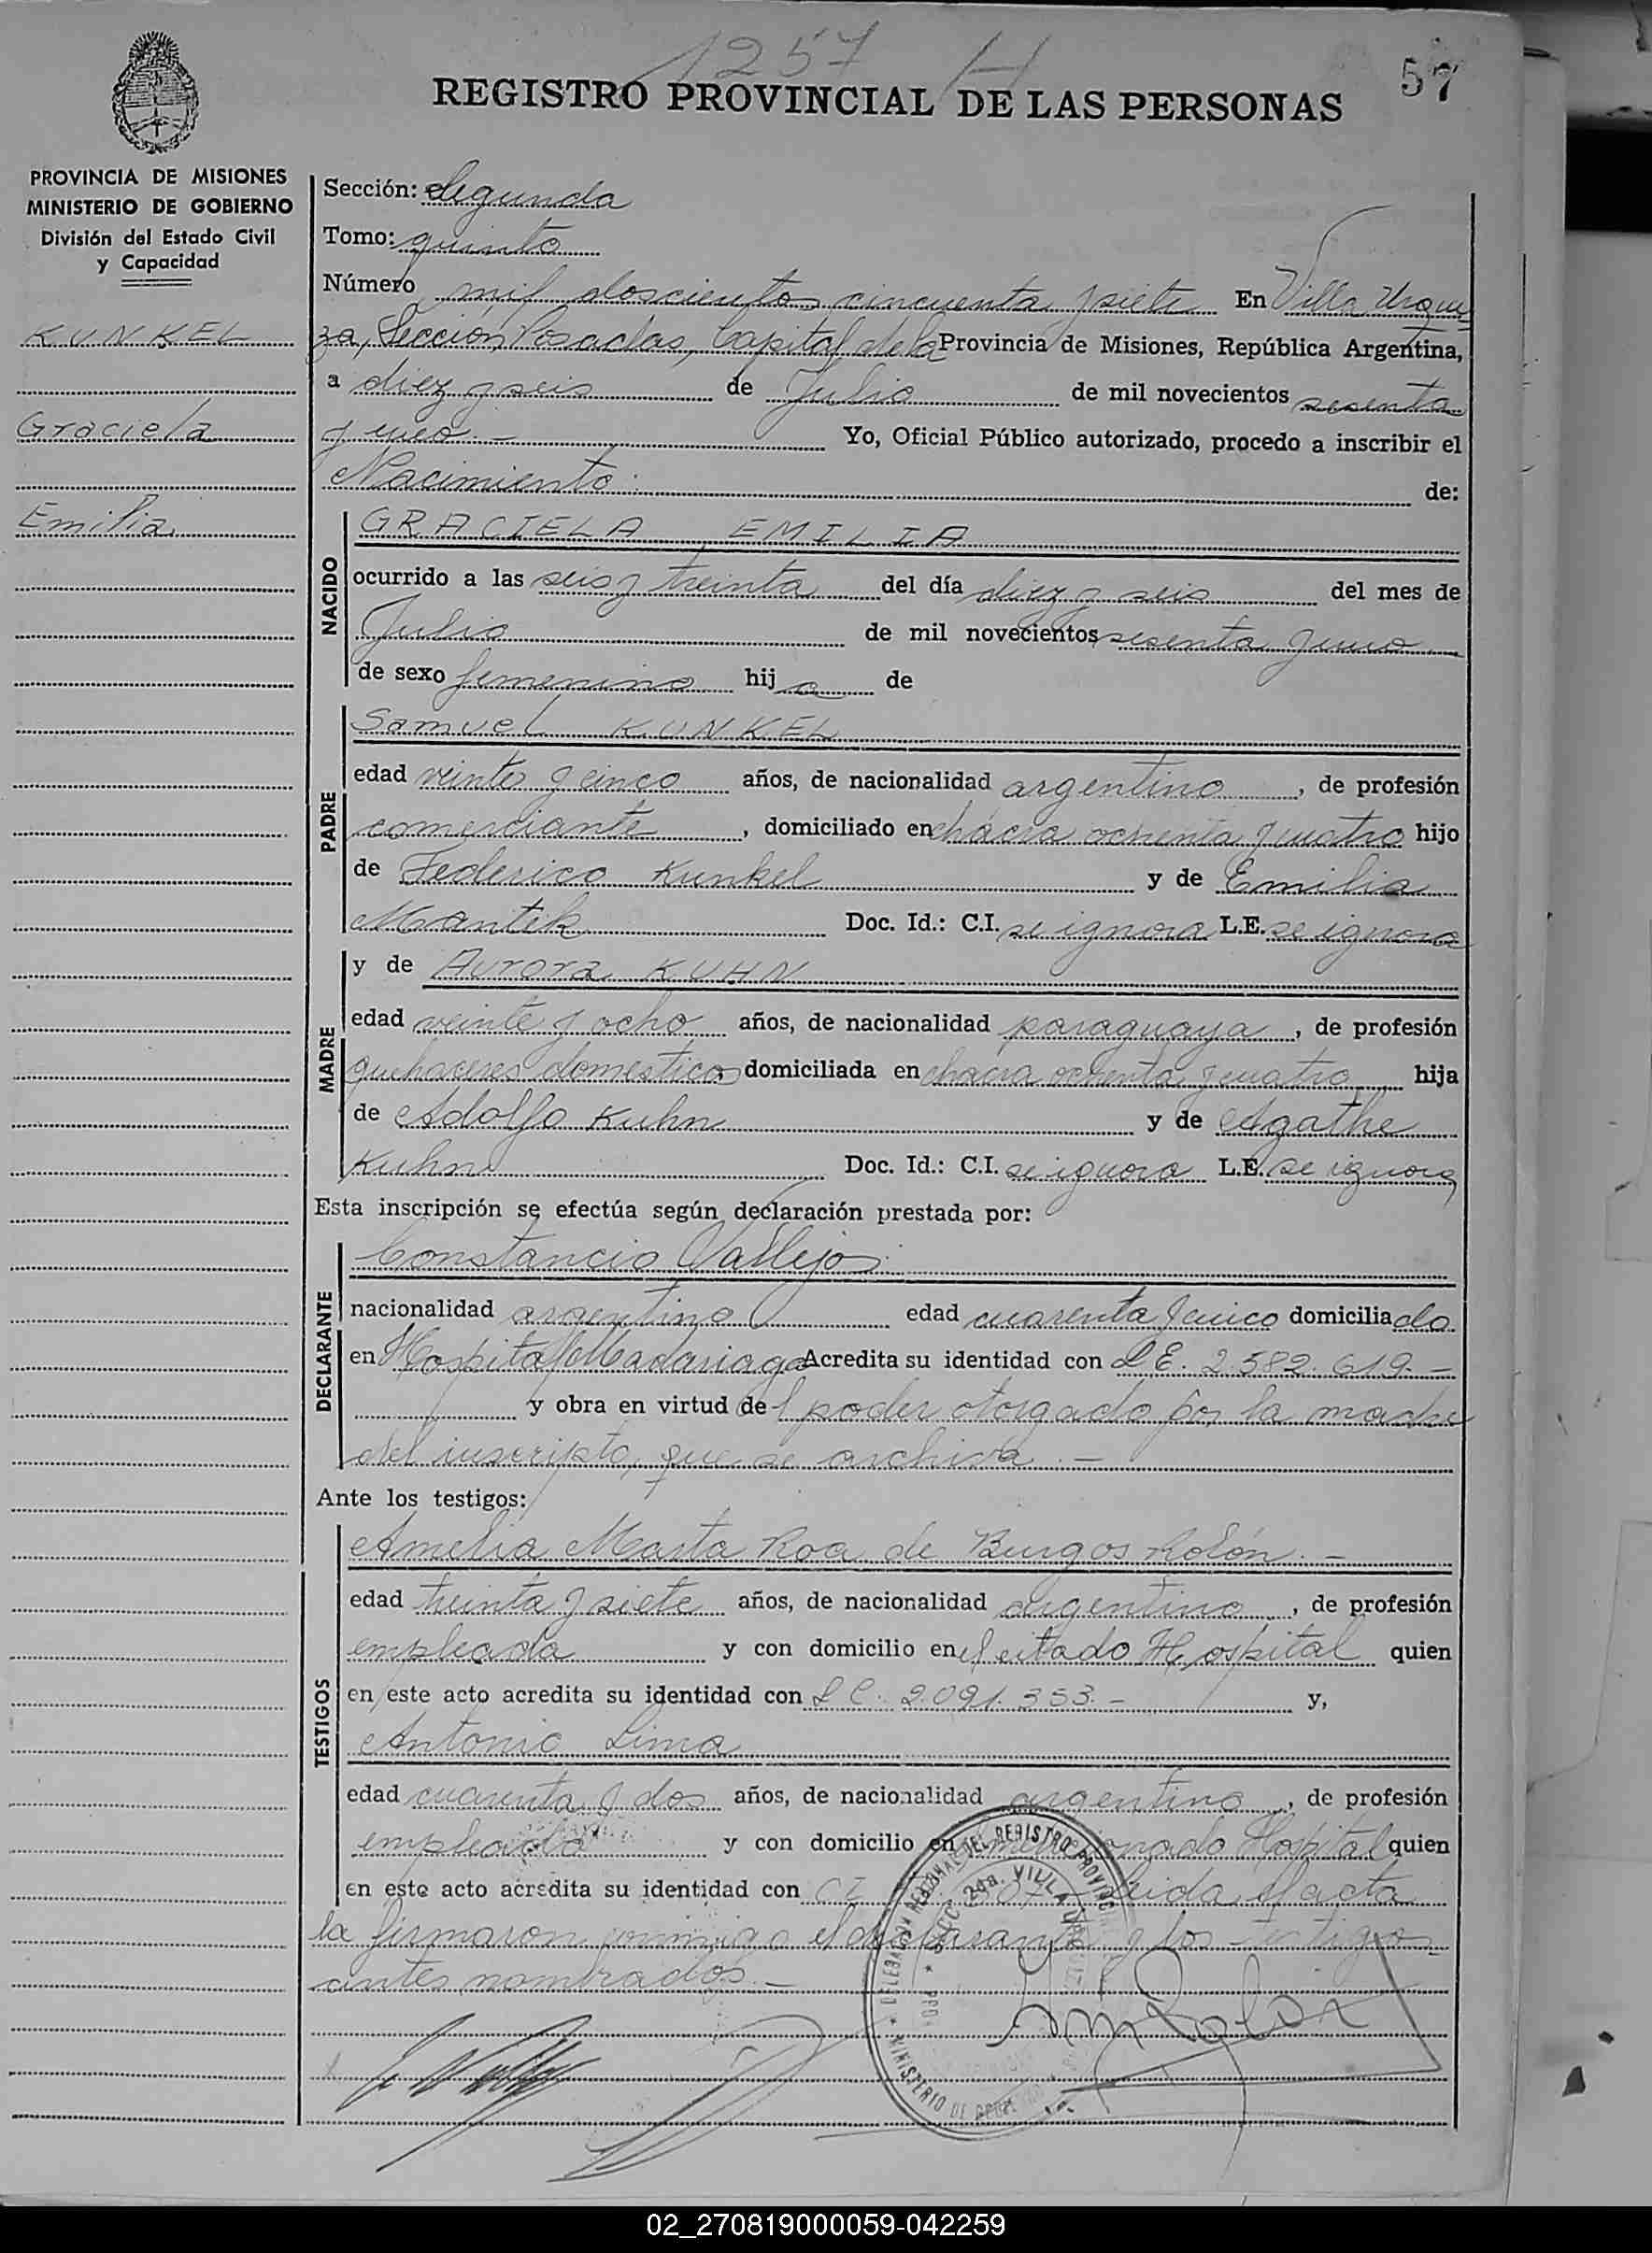 1257 H
57
REGISTRO PROVINCIAL DE LAS PERSONAS
PROVINCIA DE MISIONES
MINISTERIO DE GOBIERNO
División del Estado Civil
y Capacidad
KUNKEL
Graciela
Emilia
Sección: Segunda
Tomo: quinto
Número mil doscientos cincuenta y siete En Villa Urqui
za, Sección Posadas, Capital de la Provincia de Misiones, República Argentina,
a diez y seis de Julio de mil novecientos sesenta
y uno.- Yo, Oficial Público autorizado, procedo a inscribir el
Nacimiento de:
NACIDO
GRACIELA EMILIA
ocurrido a las seis y treinta del día diez y seis del mes de
Julio de mil novecientos sesenta y uno
de sexo femenino hij a de
PADRE
Samuel KUNKEL
edad veinte y cinco años, de nacionalidad argentino, de profesión
comerciante, domiciliado en chacra ochenta y cuatro hijo
de Federico Kunkel y de Emilia
Mantik Doc. Id.: C.I. se ignora L.E. se ignora
MADRE
y de Aurora KUHN
edad veinte y ocho años, de nacionalidad paraguaya, de profesión
quehaceres domesticos domiciliada en chacra ochenta y cuatro hija
de Adolfo Kuhn y de Agathe
Kuhn Doc. Id.: C.I. se ignora L.E. se ignora
Esta inscripción se efectúa según declaración prestada por:
DECLARANTE
Constancio Vallejos
nacionalidad argentino edad cuarenta y cinco domiciliado
en Hospital Madariaga Acredita su identidad con L E. 2.582.619.-
y obra en virtud del poder otorgado por la madre
del inscripto, que se archiva.-
Ante los testigos:
TESTIGOS
Amelia Marta Roa de Burgos Rolón.-
edad treinta y siete años, de nacionalidad argentina, de profesión
empleada y con domicilio en el citado Hospital quien
en este acto acredita su identidad con L C. 2.091.353.- y,
Antonio Lima
edad cuarenta y dos años, de nacionalidad argentino, de profesión
empleado y con domicilio en Hospital quien
en este acto acredita su identidad con CI Leida el acta
la firmaron conmigo el declarante y los testigos
antes nombrados.-
DELEGACION DEL REGISTRO PROVINC
SECC. 2da. VILLA
MINISTERIO DE
02_270819000059-042259